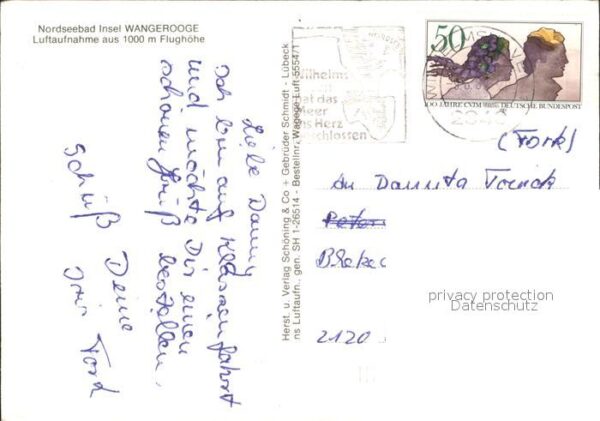 Nordseebad Insel WANGEROOGE
Luftaufnahme aus 1000 m Flughöhe
Liebe Danny
Ich bin auf Klassenfahrt
und möchte Dir einen
schönen Gruß bestellen.
Schüß Deine
Iris Tork
Herst. u. Verlag Schöning & Co + Gebrüder Schmidt - Lübeck
ns Luftaufn., gen. SH 1-26514 - Bestellnr. Wagege Luft 5554/1
hat das
Meer
ins Herz
geschlossen
50
100 JAHRE CVJM DEUTSCHE BUNDESPOST
(Tork)
An Danuta
Peter
2120
privacy protection
Datenschutz